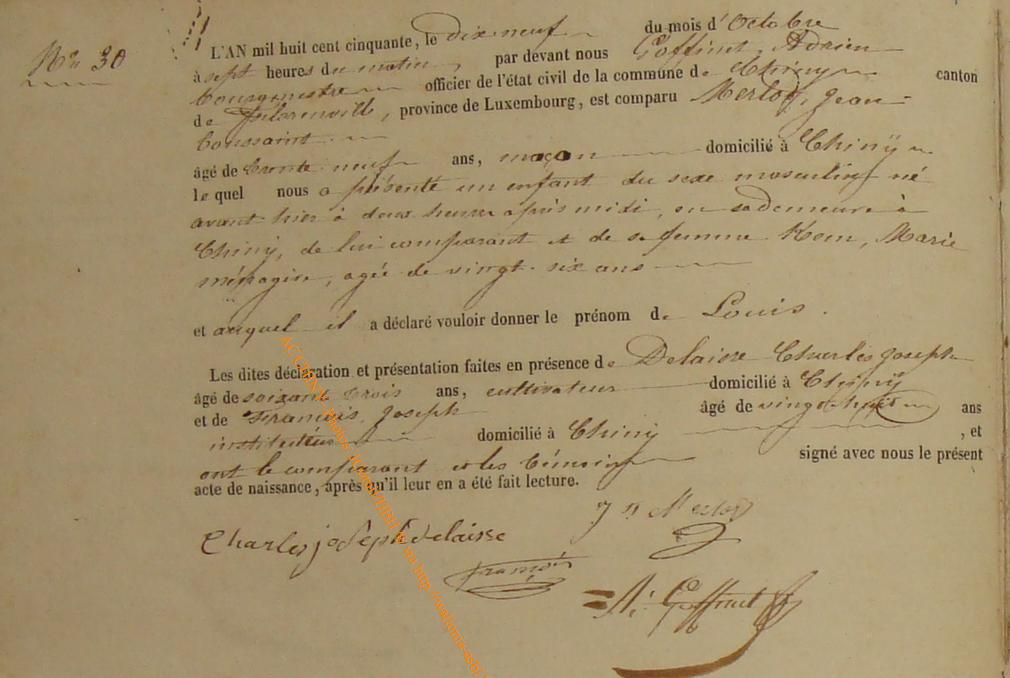 No 30
L'AN mil huit cent cinquante, le dix neuf du mois d'Octobre
à sept heures du matin, par devant nous Goffinet, Adrien
bourgmestre officier de l'état civil de la commune de Chiny canton
de Florenville, province de Luxembourg, est comparu Merlot, Jean
Toussaint
âgé de trente neuf ans, maçon domicilié à Chinÿ
lequel nous a présenté un enfant du sexe masculin né
avant hier à deux heures après midi, en sa demeure à
Chiny, de lui comparant et de sa femme Marie
ménagère, agée de vingt-six ans
et auquel il a déclaré vouloir donner le prénom de Louis.
Les dites déclaration et présentation faites en présence de Delaisse Charles Joseph
âgé de soixante trois ans, cultivateur domicilié à Chinÿ
et de François, Joseph âgé de vingt huit ans
instituteur domicilié à Chiny, et
ont le comparant et les témoins signé avec nous le présent
acte de naissance, après qu'il leur en a été fait lecture.
Merlot
Charles joseph delaisse
françois
A. Goffinet